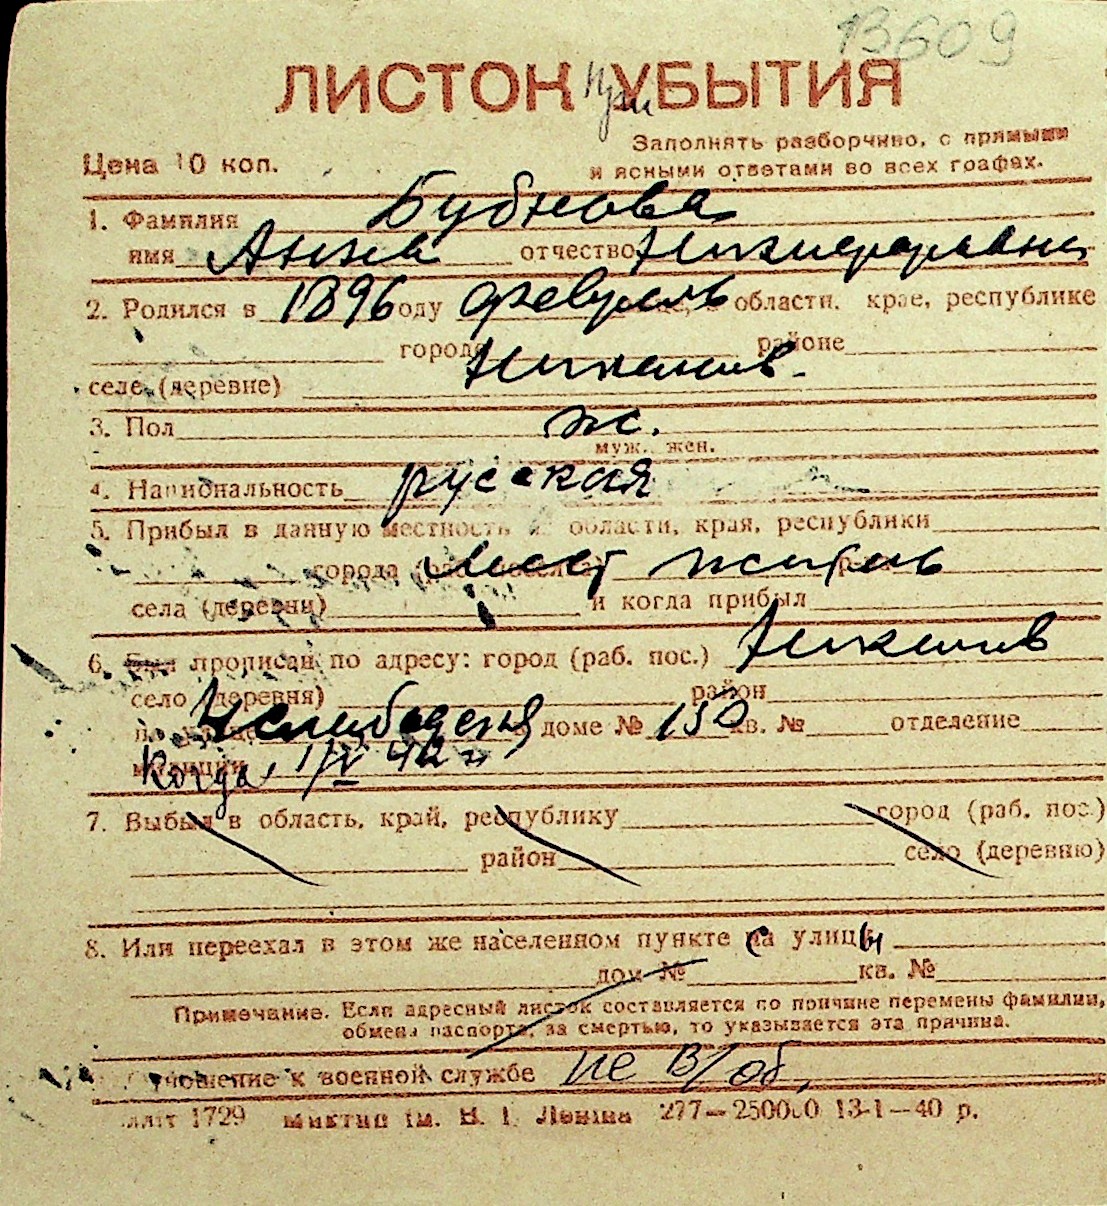 13609
ЛИСТОК При УБЫТИЯ
Заполнять разборчиво, с прямыми
Цена 10 коп. и ясными ответами во всех графах.
1. Фамилия Бубнова
имя Анна отчество Никифоровна
2. Родился в 1896 году февраль области, крае, республике
городе районе
селе (деревне) Николаев.
3. Пол ж.
муж. жен.
4. Национальность русская
5. Прибыл в данную местность области, края, республики
города мест житель
села (деревни) и когда прибыл
6. Был прописан по адресу: город (раб. пос.) Николаев
село (деревня) район
доме № 150 кв. № отделение
милиции Когда 1/V 42 г.
7. Выбыл в область, край, республику город (раб. пос.)
район село (деревню)
8. Или переехал в этом же населенном пункте са улицы
дом № кв. №
Примечание. Если адресный листок составляется по причине перемены фамилии,
обмена паспорта, за смертью, то указывается эта причина.
Отношение к военной службе не в/об.
1729 ім. В. І. Леніна 277—250000 13-1—40 р.